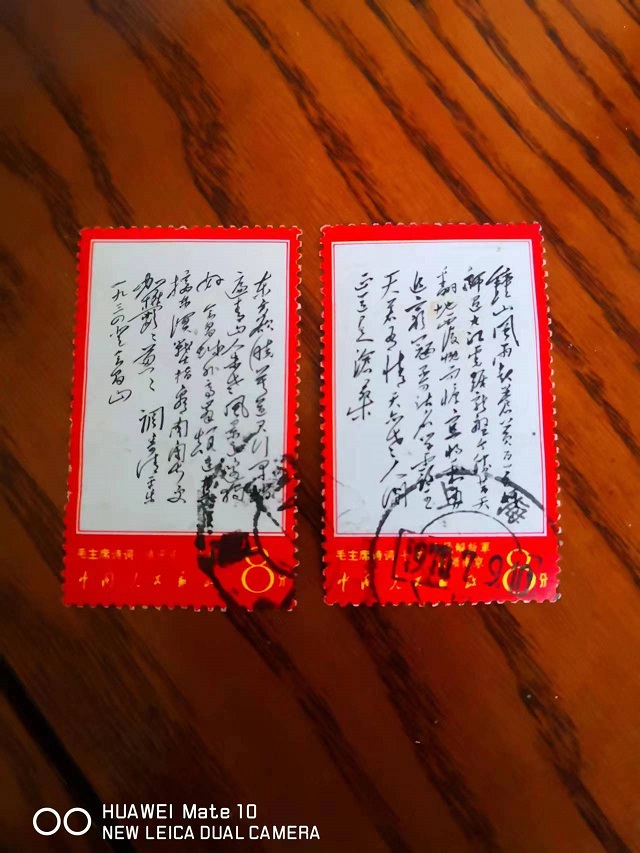 东方欲晓莫道君行早踏
遍青山人未老风景这边独
好 会昌城外高峰颠连直
接东溟战士指看南粤更
加郁郁葱葱 调寄清平乐
一九三四 登会昌山
毛主席诗词
中国人民邮政
8分
钟山风雨起苍黄百万雄
师过大江虎踞龙盘今胜昔天
翻地覆慨而慷宜将剩勇
追穷寇不可沽名学霸王
天若有情天亦老人间
正道是沧桑
毛主席诗词
中国人民邮政
8分
HUAWEI Mate 10
NEW LEICA DUAL CAMERA